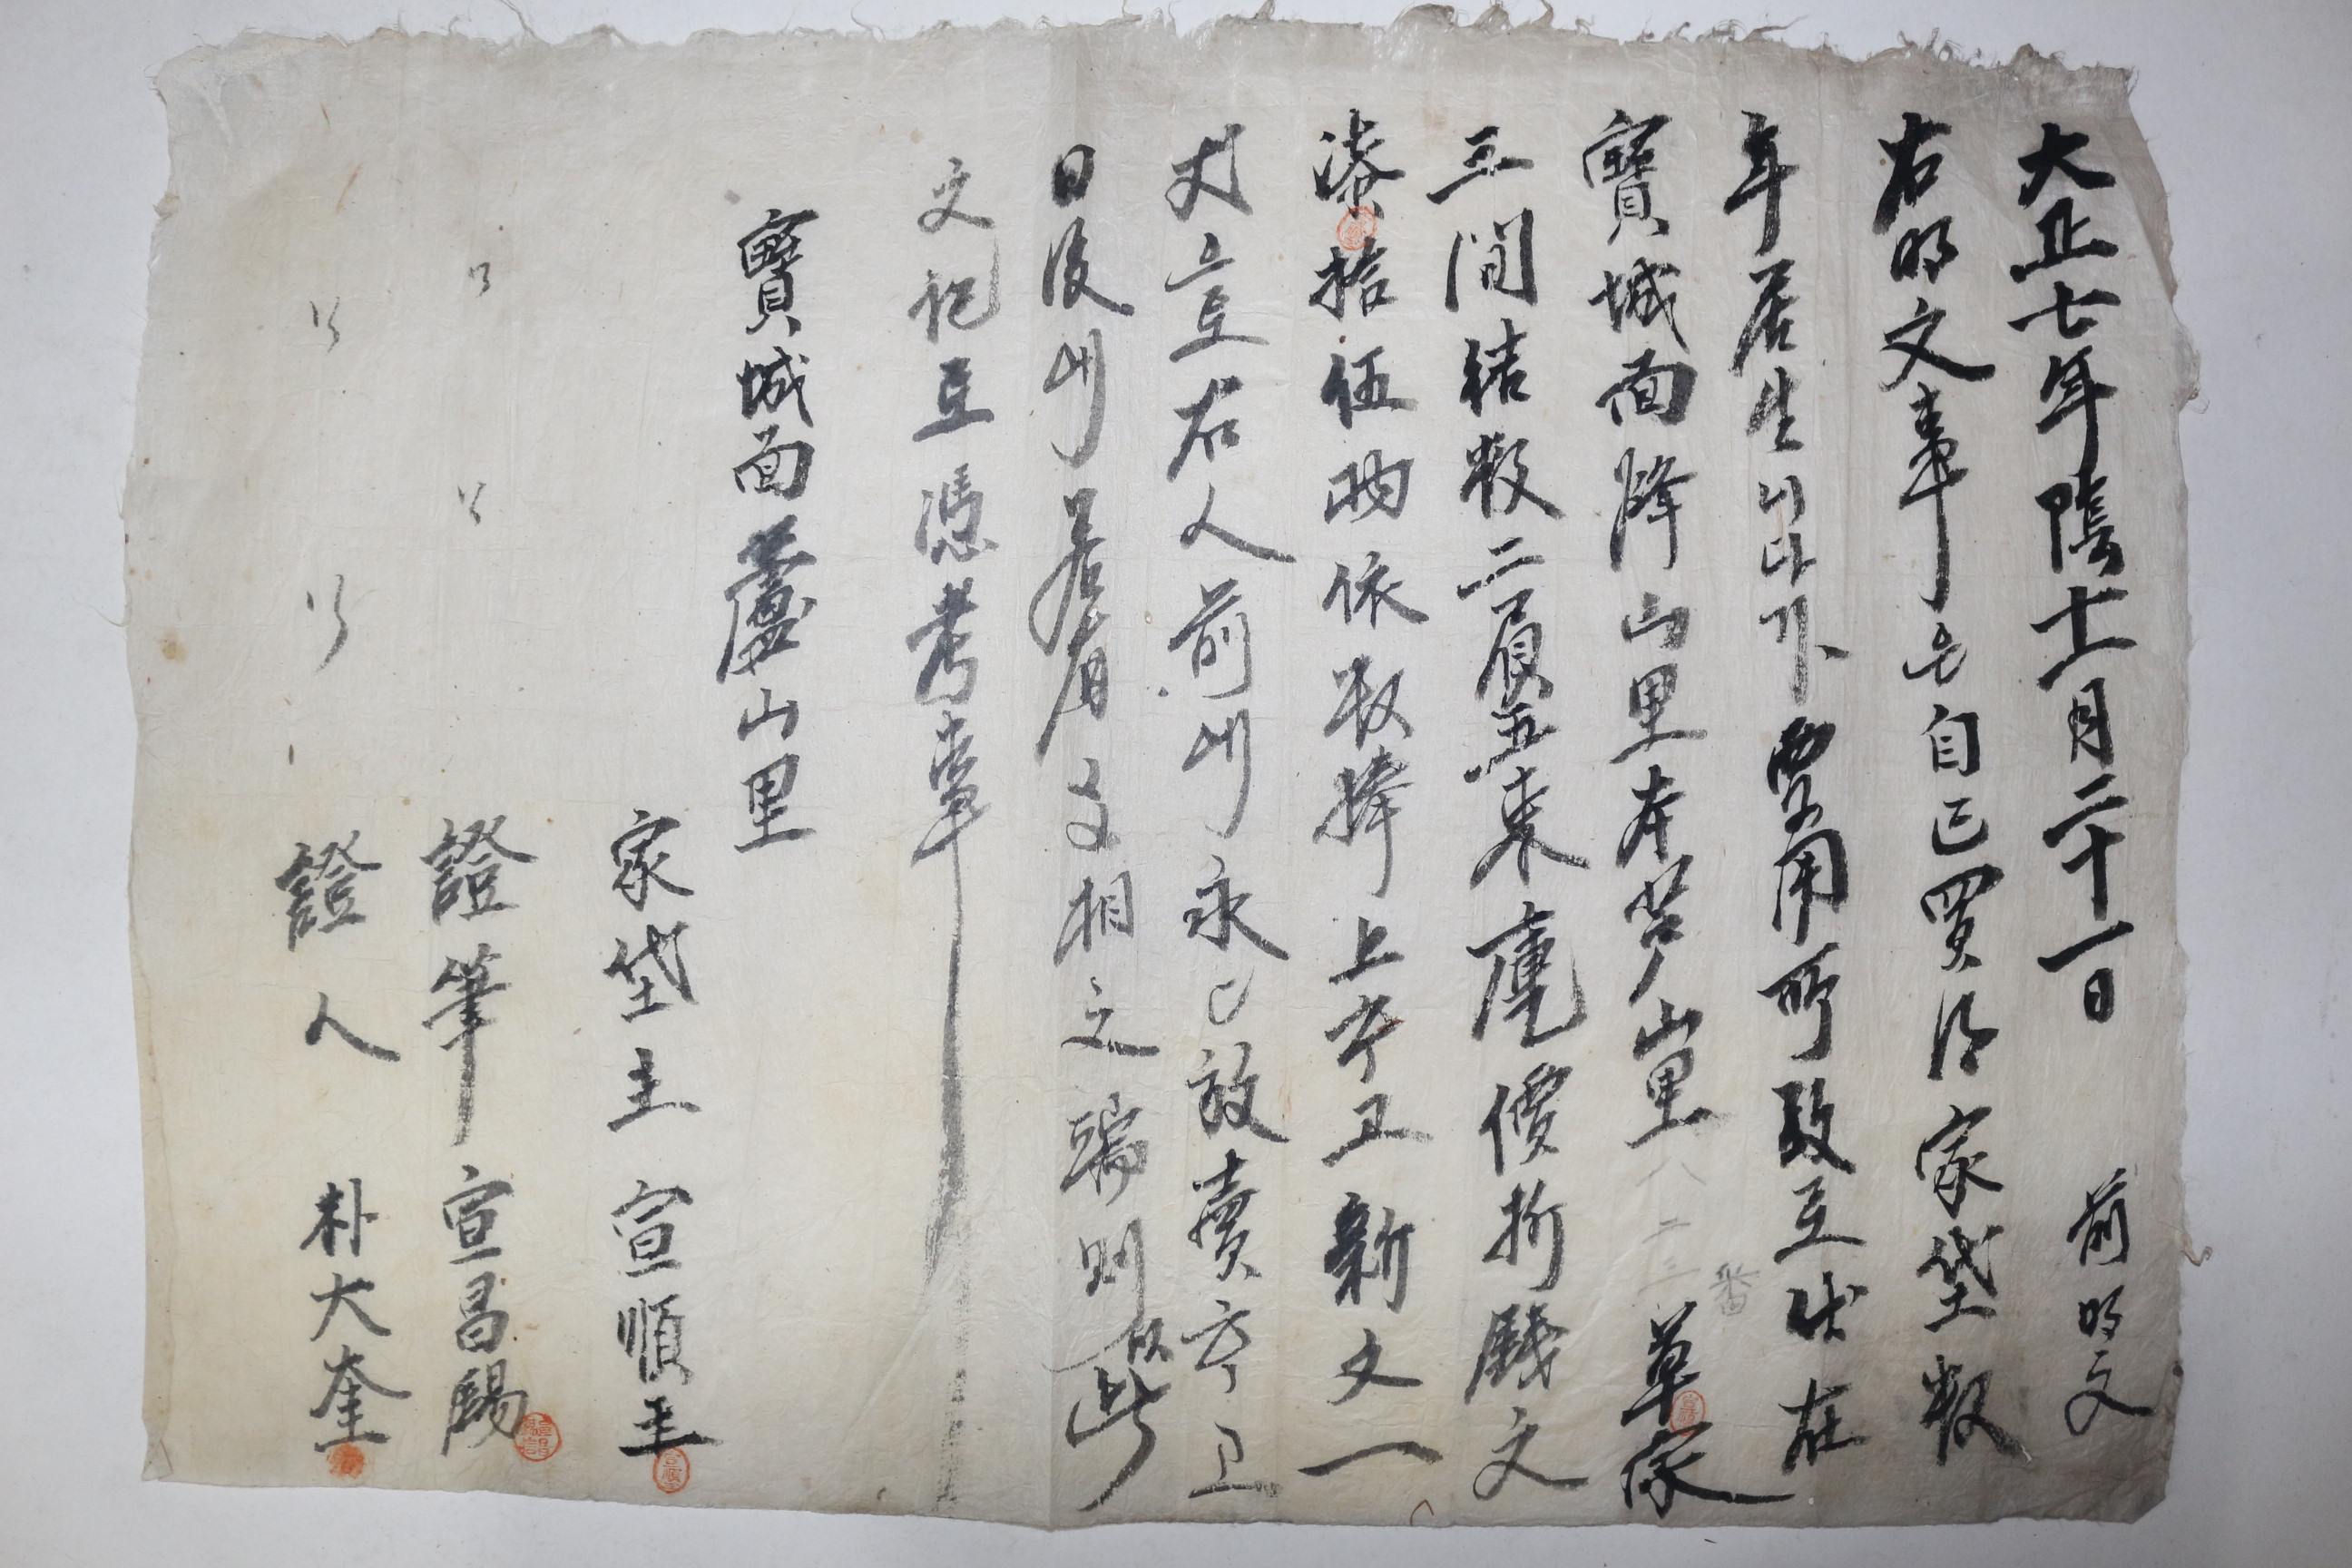 大正七年陰十一月二十一日 前明文
右明文事은自己買得家垈數
年居生이다가要用所致로伏在
寶城面降山里本芦山里八二三番草家
三間結數二負五束㐣價折錢文
㯃拾伍兩依數捧上고新文一
丈으로右人前에永永放賣고
日後에若有文相之端則以此
文記로憑考事
寶城面蘆山里
家垈主 宣順圭
〃 〃 證筆 宣昌錫
〃 〃 證人 朴大奎